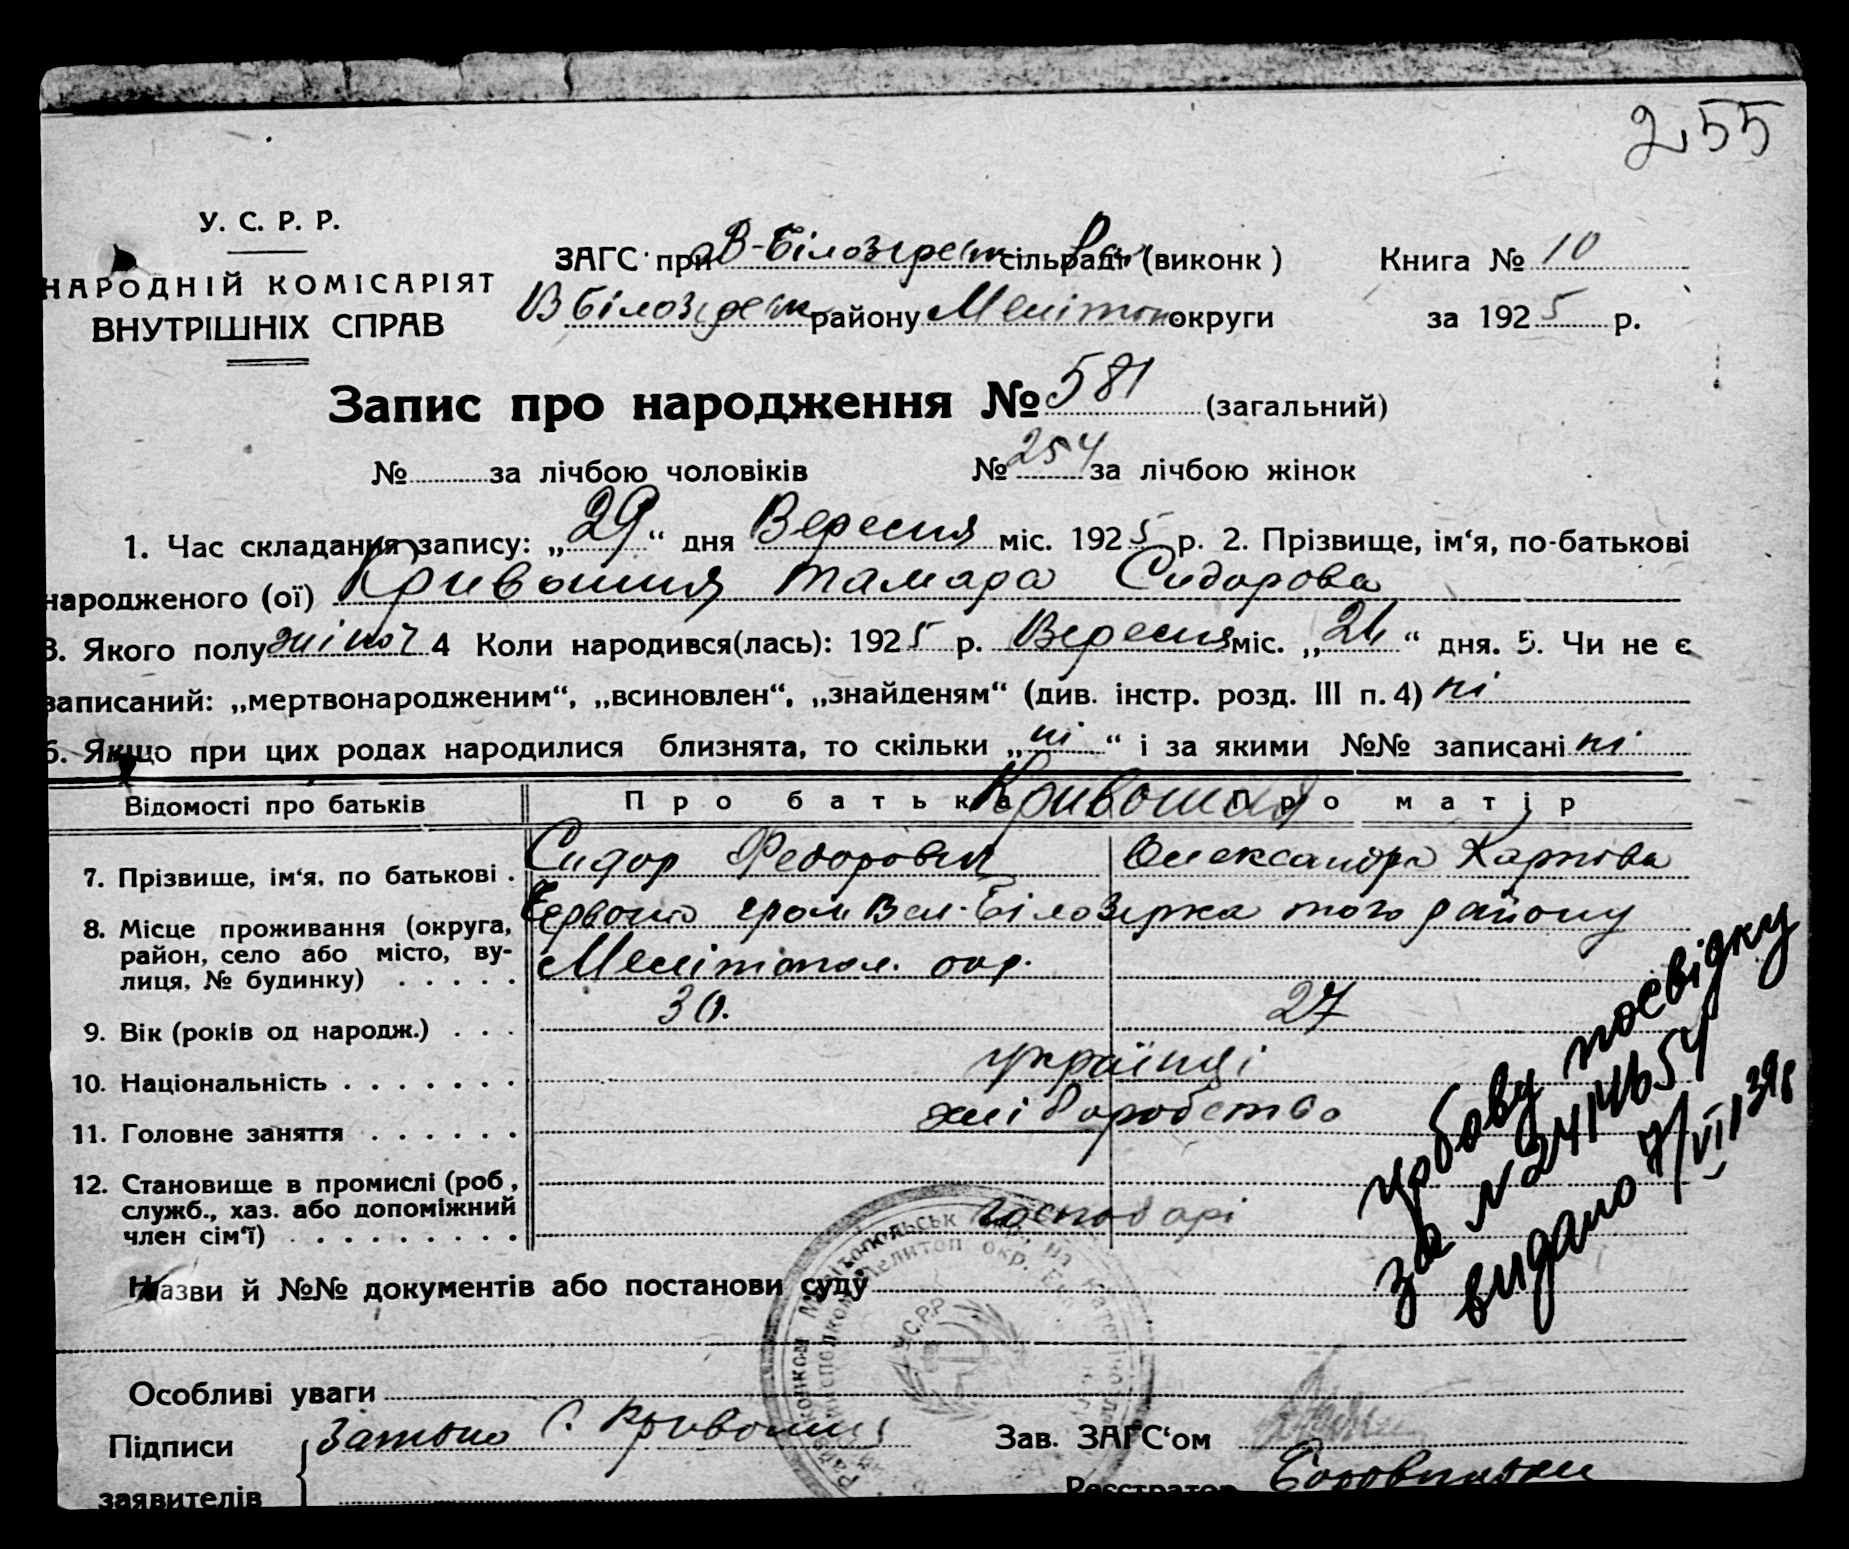 255
У. С. Р. Р.
НАРОДНІЙ КОМІСАРІЯТ
ВНУТРІШНІХ СПРАВ
ЗАГС при В-Білозірськ сільраді (виконк)
В Білозерськ району Мелітоп. округи
Книга № 10
за 1925 р.
Запис про народження № 581 (загальний)
№ за лічбою чоловіків № 254 за лічбою жінок
1. Час складання запису: „29“ дня Вересня міс. 1925 р. 2. Прізвище, ім‘я, по-батькові
народженого (ої) Кривошия Тамара Сидорова
3. Якого полу жіноч 4 Коли народився(лась): 1925 р. Вересня міс. „ “ дня. 5. Чи не є
записаний: „мертвонародженим“, „всиновлен“, „знайденям“ (див. інстр. розд. III п. 4) ні
6. Якщо при цих родах народилися близнята, то скільки „ні“ і за якими №№ записані ні
Відомості про батьків Про батька Про матір
Кривошия
7. Прізвище, ім‘я, по батькові . Сидор Федорович Олександра Карпова
8. Місце проживання (округа, район, село або місто, вулиця, № будинку) . . . . . Червоно гром Вел-Білозірка того району
Мелітопол. окр.
9. Вік (років од народж.) . . . 30. 27
10. Національність . . . . . . . українці
11. Головне заняття . . . . . . хліборобство
12. Становище в промислі (роб., служб., хаз. або допоміжний член сім‘ї) . . . . . . . . . господарі
Назви й №№ документів або постанови суду
Особливі уваги
Підписи Батько С. Кривошия Зав. ЗАГС‘ом
заявителів Реєстратор
посвідку
за №
видано 7/VI 39
У.С.Р.Р.